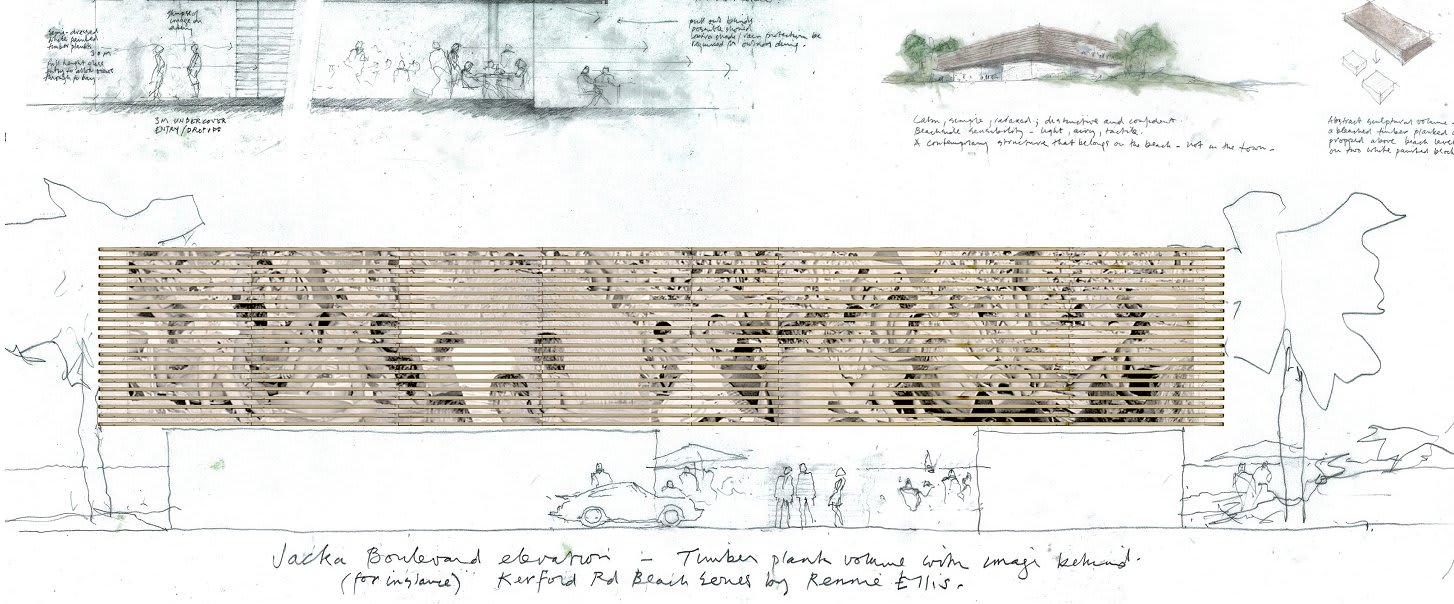 glimpse of
image on
semi-dressed
white painted
timber planks
3.0 M
full height glass
through to bay.
3M UNDERCOVER
ENTRY/DROPOFF
pull out blinds
possible should
extra shade/rain protection be
required for outdoor dining.
Calm, simple, relaxed; distinctive and confident.
Beachside sensibility - light, airy, tactile.
A contemporary structure that belongs on the beach - not in the town -
Abstract sculptural volume -
a bleached timber planked
propped above beach level
on two white painted block
Jacka Boulevard elevation - Timber plank volume with image behind.
(for instance) Kerford Rd Beach series by Rennie Ellis.